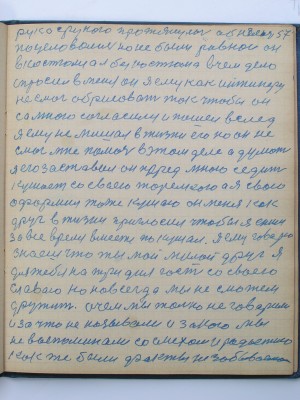 рука с рукою протянулся обнялись 57
поцеловались но не были равной он
в костюма а без костюма в чем дело
спросил в меня он я ему как
не смог обрисовать так чтобы он
самного согласием и пошел вслед
я ему не мишал в жизни его но он не
смог мне помоч в этом деле а думати
я его заставил он пред мною седит
кушает со своего торелкого а я свою
оформил тоже кушаю он меня как
друг в жизни пригласил чтобы я с ним
за все время вместе покушал. Я ему говорю
знаеш что ты мой милой друг я
для тебя на три дня гость со своего
словаю но навсегда мы не сможем
дружить. о чем мы только не говорили
и за что не называли и за кого мы
не воспоминали со смехом и радостию
как же были факты незабываем